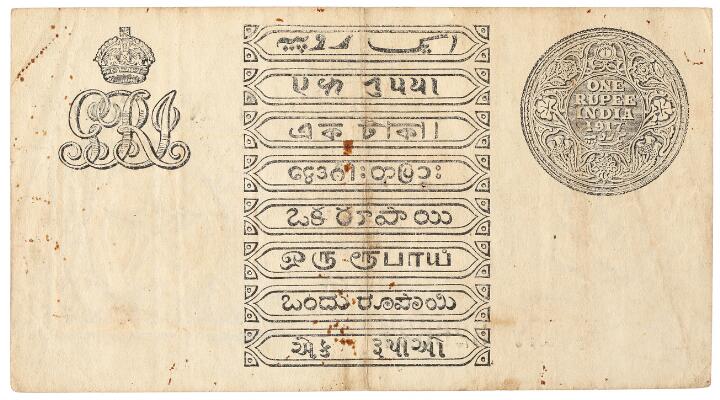 GRI
ایک روپیہ
एक रुपया
এক টাকা
ఒక రూపాయి
ஒரு ரூபாய்
ಒಂದು ರೂಪಾಯಿ
એક રૂપીઓ
ONE
RUPEE
INDIA
1917